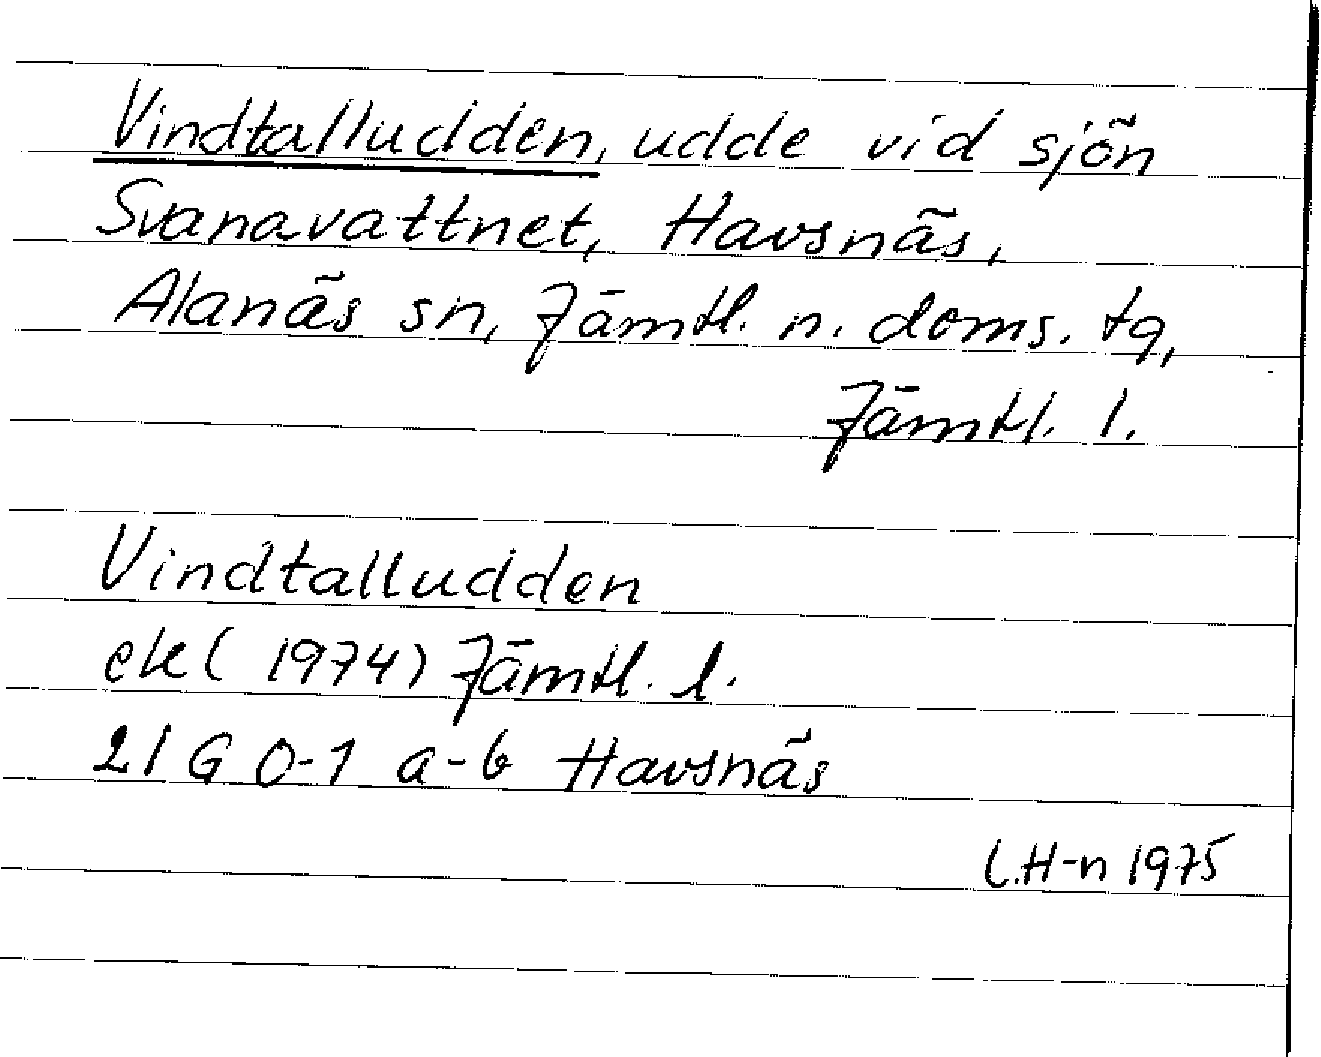 Vindtalludden, udde vid sjön
Svanavattnet, Havsnäs,
Alanäs sn, Jämtl. n. doms. tg,
Jämtl. l.
Vindtalludden
ek (1974) Jämtl. l.
21 G 0-1 a-b Havsnäs
L.H-n 1975